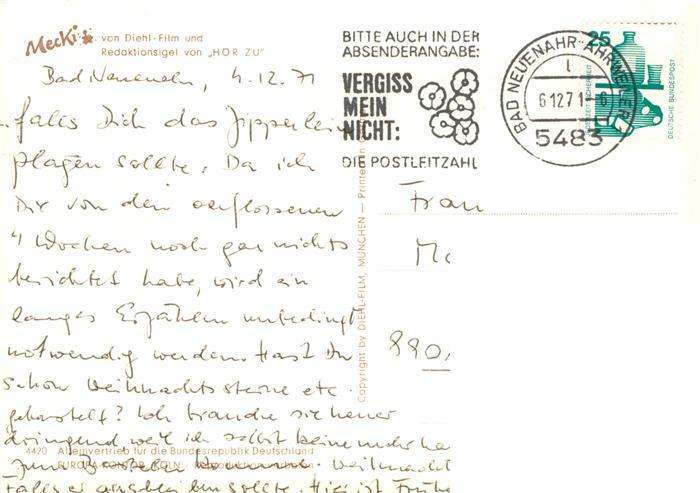 Mecki von Diehl-Film und
Redaktionsigel von „HÖR ZU"
BITTE AUCH IN DER
ABSENDERANGABE:
VERGISS
MEIN
NICHT:
DIE POSTLEITZAHL
BAD NEUENAHR-AHRWEILER 1
l
6.12.71-6
5483
25
DEUTSCHE BUNDESPOST
Bad Neuenahr, 4.12.71
falls Dich das Zipperlein
plagen sollte. Da ich
Dir von den verflossenen
4 Wochen noch gar nichts
berichtet habe, wird ein
langes Erzählen unbedingt
notwendig werden. Hast Du
schon Weihnachtssterne etc.
gebastelt? Ich brauche sie heuer
dringend weil ich selbst keine mehr ha
zum Basteln Weihnacht
Falls er ausbleiben sollte. Hier ist Frühe
Copyright by DIEHL-FILM, MÜNCHEN — Printed in
4420 Alleinvertrieb für die Bundesrepublik Deutschland
EUROPA KÖLN
Frau
Mc
880